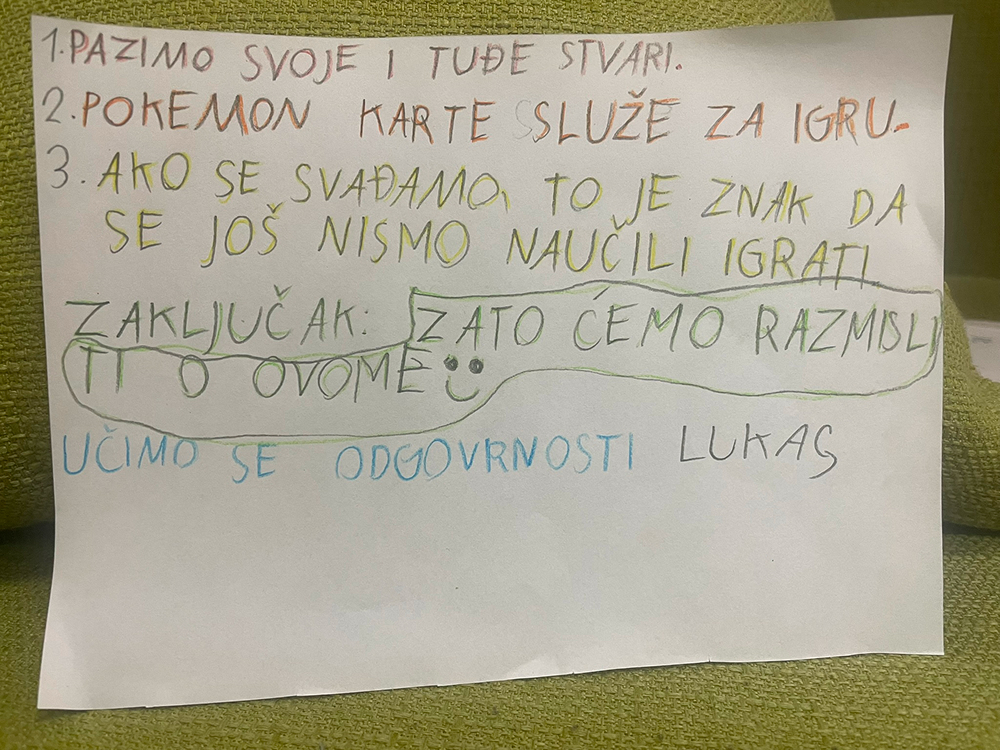 1. PAZIMO SVOJE I TUĐE STVARI.
2. POKEMON KARTE SLUŽE ZA IGRU.
3. AKO SE SVAĐAMO, TO JE ZNAK DA
SE JOŠ NISMO NAUČILI IGRATI
ZAKLJUČAK: ZATO ĆEMO RAZMISLI
TI O OVOME
UČIMO SE ODGOVRNOSTI LUKAS